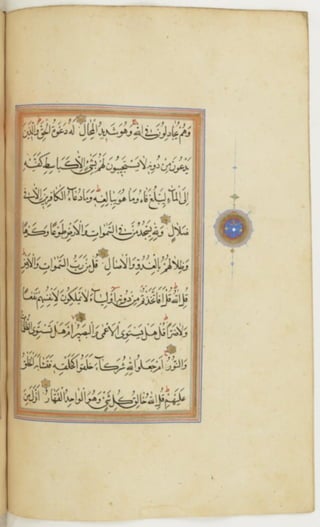 وَهُمْ يُجَادِلُونَ فِي اللَّهِ وَهُوَ شَدِيدُ الْمِحَالِ لَهُ دَعْوَةُ الْحَقِّ وَالَّذِينَ
يَدْعُونَ مِنْ دُونِهِ لَا يَسْتَجِيبُونَ لَهُمْ بِشَيْءٍ إِلَّا كَبَاسِطِ كَفَّيْهِ
إِلَى الْمَاءِ لِيَبْلُغَ فَاهُ وَمَا هُوَ بِبَالِغِهِ وَمَا دُعَاءُ الْكَافِرِينَ إِلَّا فِي
ضَلَالٍ وَلِلَّهِ يَسْجُدُ مَنْ فِي السَّمَوَاتِ وَالْأَرْضِ طَوْعًا وَكَرْهًا
وَظِلَالُهُمْ بِالْغُدُوِّ وَالْآصَالِ قُلْ مَنْ رَبُّ السَّمَوَاتِ وَالْأَرْضِ
قُلِ اللَّهُ قُلْ أَفَاتَّخَذْتُمْ مِنْ دُونِهِ أَوْلِيَاءَ لَا يَمْلِكُونَ لِأَنْفُسِهِمْ نَفْعًا
وَلَا ضَرًّا قُلْ هَلْ يَسْتَوِي الْأَعْمَى وَالْبَصِيرُ أَمْ هَلْ تَسْتَوِي الظُّلُمَاتُ
وَالنُّورُ أَمْ جَعَلُوا لِلَّهِ شُرَكَاءَ خَلَقُوا كَخَلْقِهِ فَتَشَابَهَ الْخَلْقُ
عَلَيْهِمْ قُلِ اللَّهُ خَالِقُ كُلِّ شَيْءٍ وَهُوَ الْوَاحِدُ الْقَهَّارُ أَنْزَلَ مِنَ